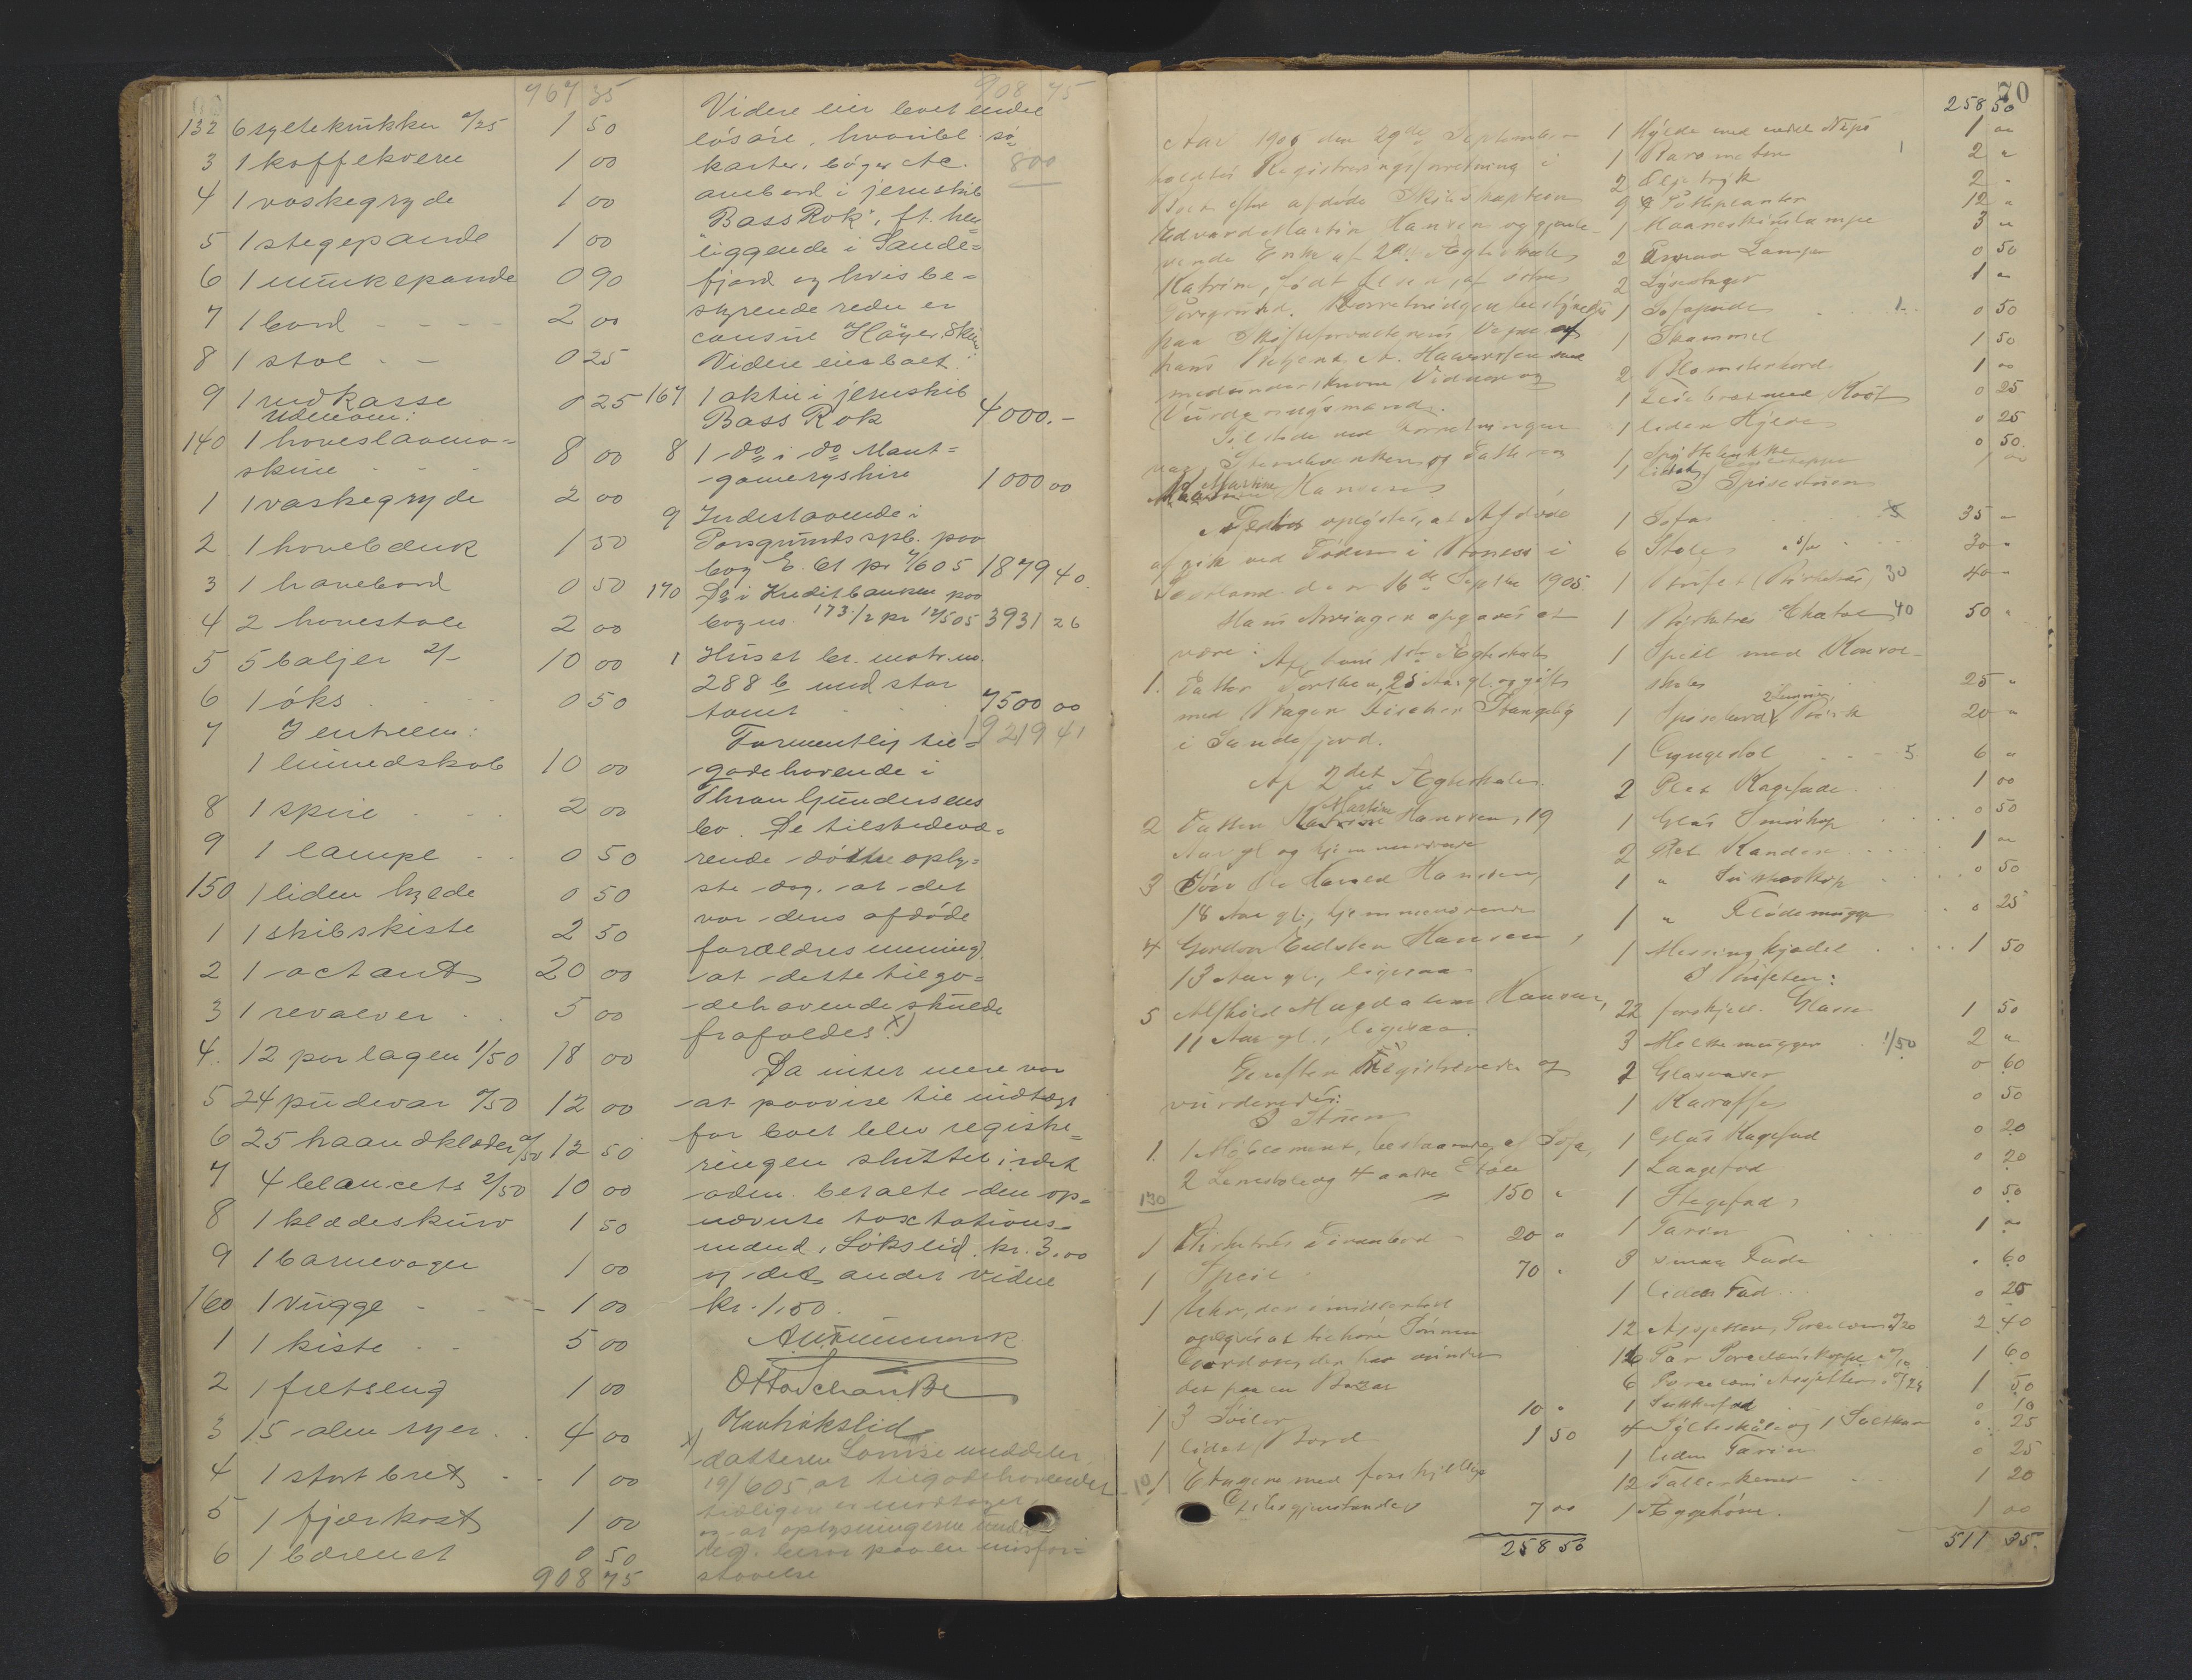 967 35
132 6 syltekrukker a/25 1 50
3 1 kaffekvern 1 00
4 1 vaskegryde 1 00
5 1 stegepande 1 00
6 1 munkepande 0 90
7 1 bord 2 00
8 1 stol 0 25
9 1 vedkasse 0 25
Udenom:
140 1 haveslaama-
skine 8 00
1 1 vaskegryde 2 00
2 1 havebænk 1 50
3 1 havebord 0 50
4 2 havestole 2 00
5 5 baljer 2/- 10 00
6 1 öks 0 50
7 I entreen:
1 linnedskab 10 00
8 1 speil 2 00
9 1 lampe 0 50
150 1 liden hylde 0 50
1 1 skibskiste 2 50
2 1 octant 20 00
3 1 revolver 5 00
4. 12 par lagen 1/50 18 00
5 24 pudevar a/50 12 00
6 25 haandklæder a/50 12 50
7 4 blancets 2/50 10 00
8 1 klædeskurv 1 50
9 1 barnevogn 1 00
160 1 vugge 1 00
1 1 kiste 5 00
2 1 feltseng 1 00
3 15 alen ryer 4 00
4 1 stort bret 1 00
5 1 fjærkost 1 00
6 1 0 50
908 75
908 75
Videre eier boet endel
lösöre, hvoriblandt sö-
karter, böger etc. 800
ombord i jernskib
"Bass Rok", f.t. hen
liggende i Sande-
fjord og hvis be-
styrende reder er
consul Höyer, Skien
Videre eier boet:
167 1 aktie i jernskib
Bass Rok 4000.-
8 1 do i do Mont-
gomeryshire 1000 00
9 Indestaaende i
Porsgrunds spb. paa
bog 1879 40
170 Do i Kreditbanken paa
bog no. 173 1/2 pr 12/5 05 3931 26
1 Huset br. matr. no.
288 b med stor
tomt 7500 00
19219 41
Formentlig til-
godehavende i
Thran Gundersens
bo. De tilstedevæ-
rende döttre oply-
ste dog, at det
var deres afdöde
forældres mening,
at dette tilgo-
dehavende skulde
frafaldes x)
Da intet mere var
at paavise til indtægt
for boet blev registre-
ringen sluttet, idet
adm. betalte den op-
nævnte taxtations-
mænd, Lökslid, kr. 3.00
og det andet vidne
kr. 1,50.
Otto Schanke
x)
datteren Lovise meddeler
19/6 05, at tilgodehavendet
er modtaget,
og at oplysningerne under
reg. beror paa en misfor-
staaelse
70
Aar 1905 den 29de September
holdtes Registreringsforretning i
Boet efter afdöde Skibskaptein
Edvard Martin Hansen og gjenle-
vende Enke af 2det Ægteskab
Katrine, födt Olsen, af östre
Porsgrund. Forretningen bestyredes
paa Skifteforvalterens Vegne af
hans Betjent A. Haavorsen med
medunderskrevne Vidner og
Vurderingsmænd.
Tilstede ved Forretningen
var Stervboenken og Datteren
Martine Hansen
Det oplystes, at Afdöde
afgik ved Döden i i
den 16de Septbr 1905.
Hans Arvinger opgaves at
være:
Af hans 1ste Ægteskab
1. Datter Torsken, 25 Aar gl. og gift
med Fischer Stangeby
i Sandefjord.
Af 2det Ægteskab
2 Datter Martine Hansen, 19
Aar gl og hjemmeværende
3 Sön Ole Harald Hansen,
18 Aar gl., hjemmeværende
4 Gordon Eidsten Hansen,
13 Aar gl., ligesaa
5 Alfhild Magdalene Hansen,
11 Aar gl., ligesaa.
Derefter Registreredes og
vurderedes:
I Stuen
1. 1 Möblement, bestaaende af Sofa,
2 Lænestole og 4 andre Stole
130 150 "
1 Birketræs Divanbord 20 "
1 Speil 70 "
1 Uhr, der imidlertid
opgaves at tilhöre Sönnen
Gordon, der har vundet
det paa en Bazar
1 3 Söiler 10 "
1 lidet Bord 1 50
10 1 Etagere med forskjellige
Glasgjenstande 7 00
258 50
258 50
1 Hylde med endel Nips 1 00
1 Barometer 2 "
2 Oljetryk 2 "
9 Potteplanter 12 "
1 Maaneskinslampe 3 "
2 smaa Lamper 0 50
2 Lysestager 1 "
1 Sofapude 0 50
1 Skammel 1 50
2 Blomsterbord 1 00
1 0 25
1 liden Hylde 0 25
1 Spyttebakke 0 50
1 lidet 1 00
I Spisestuen
1 Sofa 35 -
6 Stole 5/- 30 "
1 Buffet (Birketræs) 30 40 "
1 Birketræs Chatol 40 50 "
1 Speil med Konsol-
skab 25 "
1 Spisebord, Birk 20 "
1 Gyngestol 5 6 "
2 Plet Kagefade 1 00
1 Glas Smörkop 0 50
2 Plet Kander 1 00
1 " Sukkerkop 0 50
1 " Flödemugge 0 25
1 Messingkjedel 1 50
I Buffeten:
22 forskjell. Glasse 1 50
3 Melkemugger 1/50 2 "
2 Glasvaser 0 60
1 Karaffel 0 50
1 Glas Kagefad 0 20
1 Laagefad 0 20
1 Stegefad 0 50
1 Tarin 1 00
3 smaa Fade 0 60
1 liden Fad 0 25
12 Asjetter, Porcelæns a/20 2 40
16 Par Porcelænskopper a/10 1 60
6 Porcelæns Asjetter a/25 1 50
1 Sukkerfad 0 10
4 Sylteskåle og 1 Saltkar 0 25
1 liden Tarin 0 25
12 Tallerkener 1 20
1 Æggehöne. 1 00
511 35.